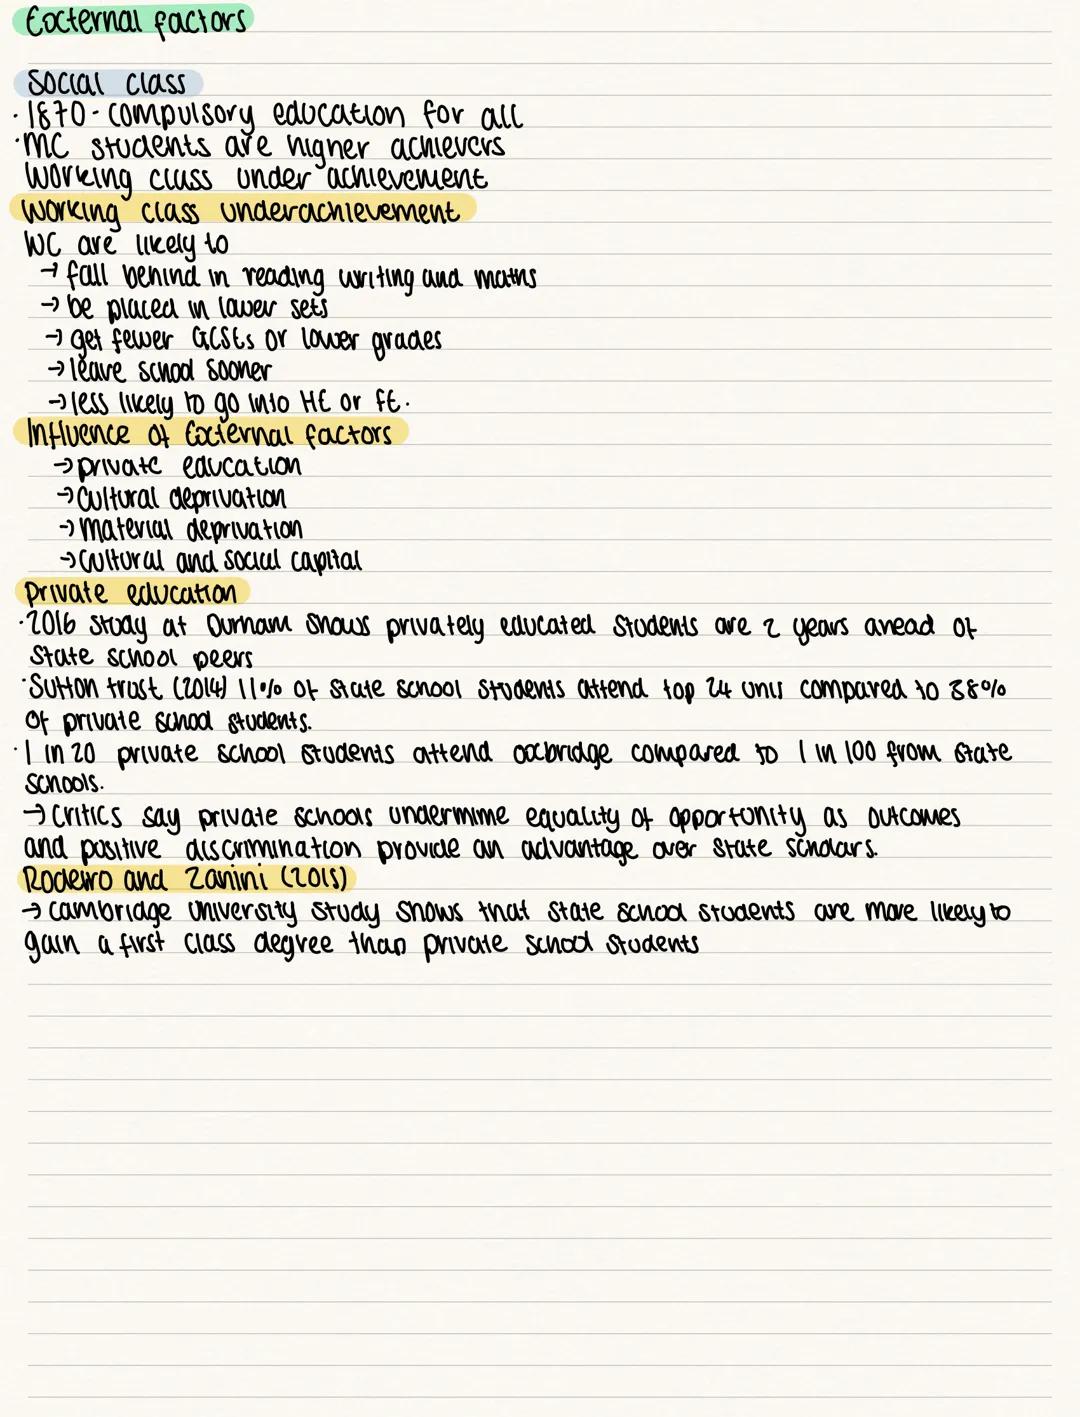 External factors
Social class
· 1870 - compulsory education for all
· MC students are higher achievers
Working class under achievement
Working class underachievement
WC are likely to
→ fall behind in reading writing and maths
→ be placed in lower sets
→ get fewer GCSEs or lower grades
→ leave school sooner
→ less likely to go into HE or FE.
Influence of External factors
→ private education
→ Cultural deprivation
→ Material deprivation
→ Cultural and social capital
Private education
· 2016 study at Durham shows privately educated students are 2 years ahead of
state school peers
· Sutton trust (2014) 11% of state school students attend top 24 unis compared to 38%
of private school students.
· 1 in 20 private school students attend oxbridge compared to 1 in 100 from state
schools.
→ Critics say private schools undermime equality of opportunity as outcomes
and positive discrimination provide an advantage over state scholars.
Rodeiro and Zanini (2015)
→ Cambridge University study shows that state school students are more likely to
gain a first class degree than private school students